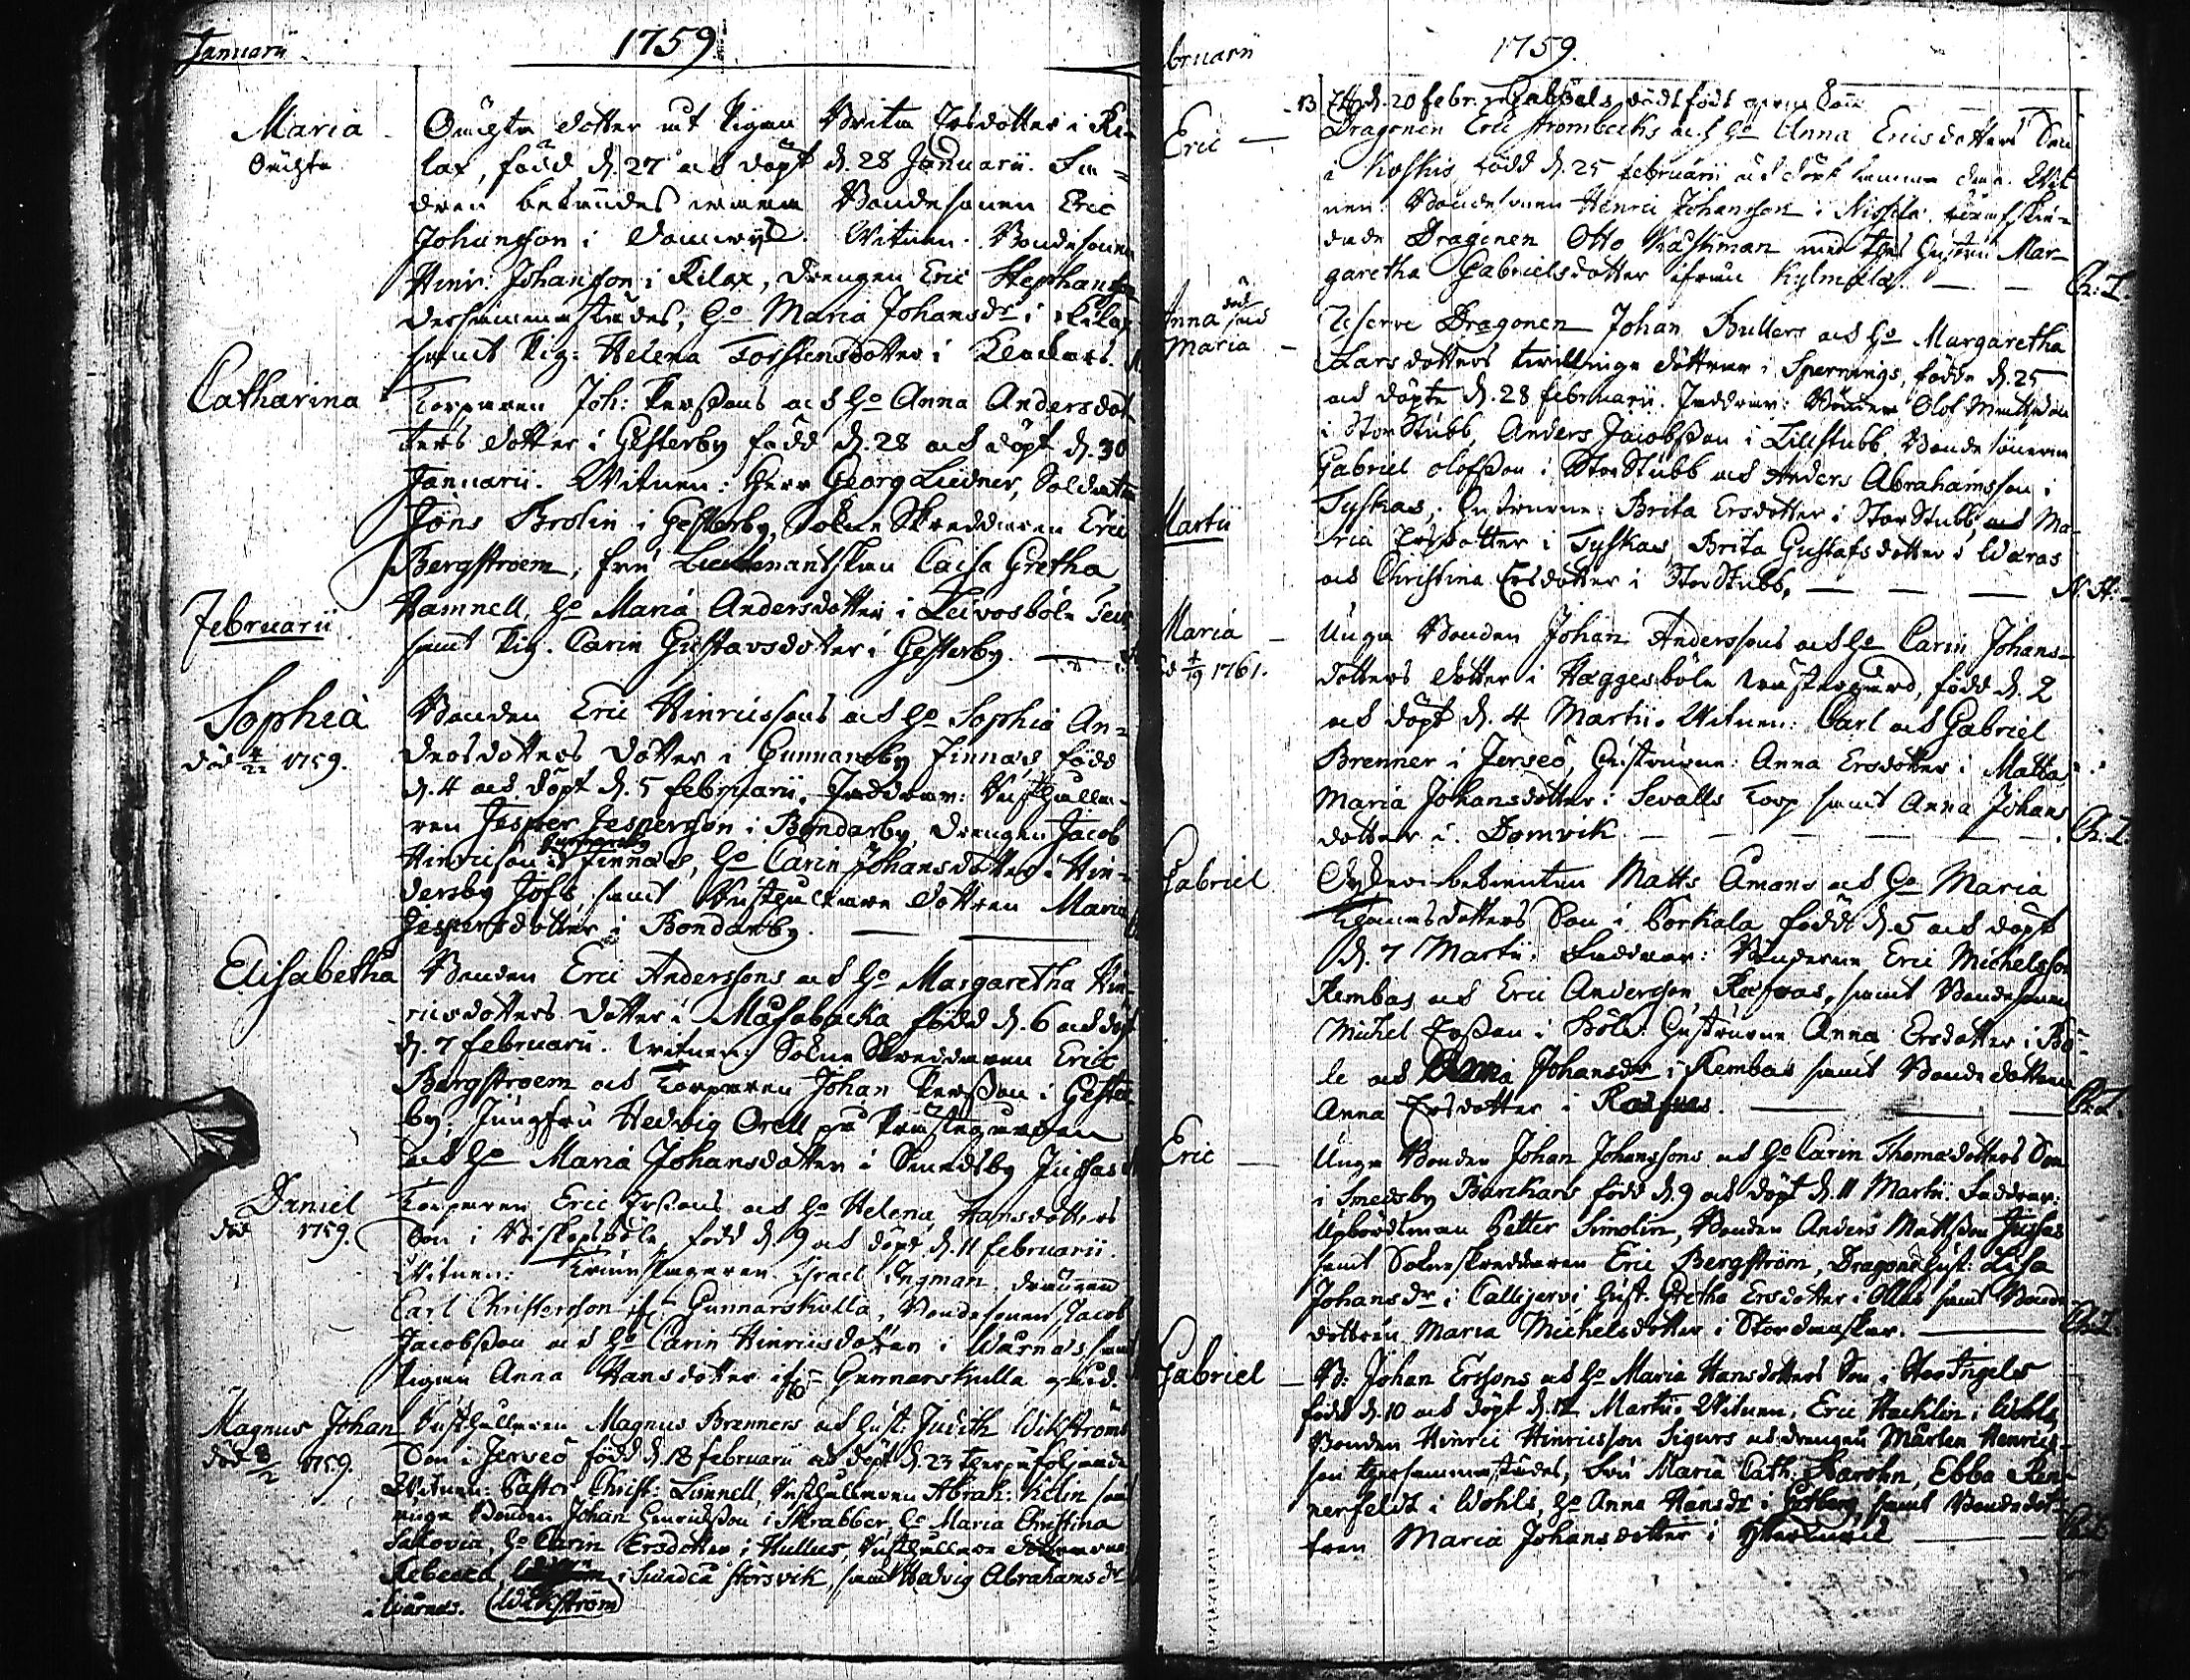 Januarii
1759
Maria
Oächta
Oächta dotter ut Pigan Brita Ersdotter i Ki-
lax, född d. 27 och döpt d. 28 Januarii. Fa-
dren Bondesonen Eric
Johansson i Domwijk. Witnen: Bondesonen
Hinr: Johansson i Kilax, Drengen Eric Stephansson
dersammastädes, H:o Maria Johansdr i Kilax
samt Pig: Helena Torstensdotter i
Catharina
Torparen Joh: Perssons och H:o Anna Andersdot
ters dotter i Gesterby född d. 28 och döpt d. 30
Januarii. Witnen: Herr Georg Liedner, Soldaten
Jöns Brolin i Gesterby, Sokne Skreddaren Eric
Bergstroem, fru Lieutenantskan Caisa Gretha
Hamnell, H:o Maria Andersdotter i Leivosböle
samt Pig. Carin Gustavsdotter i Gesterby.
Februarii
Sophia
död 4/22 1759.
Bonden Eric Hinricssons och H:o Sophia An-
dersdotters dotter i Gunnarsby Finnas, född
d. 4 och döpt d. 5 februarii. Faddrar: Rusthålla-
ren Jesper Jespersson i Bondarby, drengen Jacob
Hinricsson i Gunnarsby Finnas, H:o Carin Johansdotter i Hin-
dersby Tofs, samt Rusthållare dottren Maria
Jespersdotter i Bondarby.
Elisabetha
Bonden Eric Anderssons och H:o Margaretha Hin-
ricsdotters dotter i Masabacka född d. 6 och döpt
d. 7 februarii. Witnen: Sokne Skreddaren Eric
Bergstroem och Torparen Johan Persson i Gester-
by, Jungfru Hedvig Orell på Prästegården
och H:o Maria Johansdotter i Smedsby Jussas
Daniel
död 1759.
Torparen Eric Erssons och H:o Helena Hansdotters
Son i Biskopsböle, född d. 9 och döpt d. 11 februarii.
Witnen: Israel Ingman drängen
Carl Christersson if: Gunnarskulla, Bondesonen Jacob
Jacobsson och H:o Carin Hinricsdotter i Warnäs, samt
Pigan Anna Hansdotter ifr: Gunnarskulla
Magnus Johan
död 8/2 1759.
Rusthållaren Magnus Brenners och Hust: Judith Wikströms
Son i Jerseö född d. 18 februarii och döpt d. 23 therpåföljande
Witnen: Pastor Christ: Lönnell, Rusthållaren Abrah: Kelin samt
unga Bonden Johan Henricsson i Skrabber, H:o Maria Christina
Salovia, H:o Carin Ersdotter i Hullus, Rusthållare döttrarna
Rebecca i Sundeå störsvik, samt Hedvig Abrahamsdr
i Warnäs. Wikström
bruarii
1759.
13 d. 20 febr. Gabriels
Eric
Dragonen Eric Strömbecks och H:o Anna Ericsdotters Son
i Koskis född d. 25 februarii och döpt samma dag. Wit
nen: Bondesonen Henric Johansson i Nissila, afskie-
dade Dragonen Otto Kaschman med thes Hustru Mar-
garetha Gabrielsdotter ifrån Kylmälä. Ch: I.
Anna död
och
Maria
Reserve Dragonen Johan Bullers och H:o Margaretha
Larsdotters twillinge döttrar i Spernings, födda d. 25
och döpte d. 28 februarii. Faddrar: Bönderne Olof Mattsson
i Stor Stubb, Anders Jacobsson i Lillstubb, Bondesönerne
Gabriel Olofsson i Stor Stubb och Anders Abrahamsson i
Tyskas, Hustrurne: Brita Ersdotter i Stor Stubb, och Ma-
ria Ersdotter i Tyskas, Brita Gustafsdotter i Waras
och Christina Ersdotter i Stor Stubb, N. H.
Martii
Maria
d 4/19 1761.
Unga Bonden Johan Anderssons och H:o Carin Johans-
dotters dotter i Häggesböle westergård, född d. 2
och döpt d. 4 Martii. Witnen: Carl och Gabriel
Brenner i Jerseö, Hustrurne: Anna Ersdotter i Matba
Maria Johansdotter i Sevalls Torp samt Anna Johans
dotter i Domvik Ch. I.
Gabriel
Matts Amans och H:o Maria
Thomasdotters Son i Porkala född d. 5 och döpt
d. 7 Martii: Faddrar: Bönderne Eric Michelsson
Rembas och Eric Andersson, Rosgvas, samt Bondesonen
Michel Ersson i Böle: Hustrurne Anna Ersdotter i Bö-
le och Maria Johansdr i Rembas samt Bondedottren
Anna Ersdotter i Ch. I.
Eric
Unga Bonden Johan Johanssons och H:o Carin Thomasdotters Son
i Smedsby Barckars född d. 9 och döpt d. 11 Martii. Faddrar:
Upbördsman Petter Simolin, Bonden Anders Mattsson Jussas
samt Sokneskreddaren Eric Bergström, Dragons Hust: Lisa
Johansdr i Callijervi Hust: Gretha Ersdotter i Ollas samt Bonde-
dottren Maria Michelsdotter i Ch. I.
Gabriel
B: Johan Erssons och H:o Maria Hansdotters Son i Stor Ingels
född d. 10 och döpt d. 12 Martii. Witnen: Eric Hacklin i Wohls
Bonden Hinric Hinricsson Sigurs och drengen Mårten Henrics-
son thersammastädes, Fru Maria Cath: Ebba Ren-
nerfeldt i Wohls, H:o Anna Hansdr i samt Bondedot-
tren Maria Johansdotter i